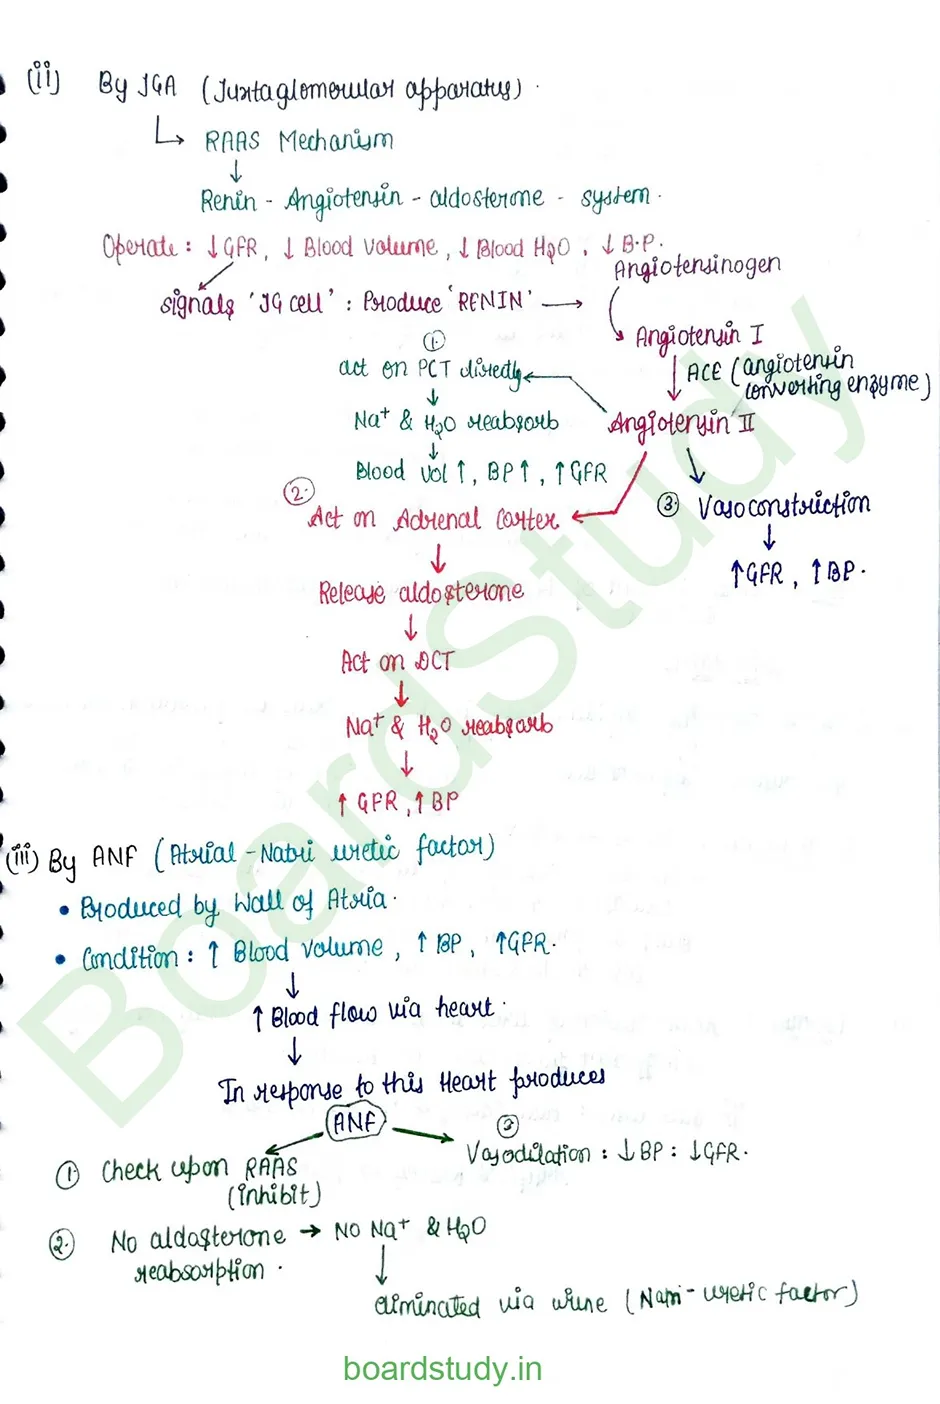 (ii) By JGA (Juxtaglomerular apparatus).
↳ RAAS Mechanism
↓
Renin - Angiotensin - aldosterone - system.
Operate: ↓ GFR, ↓ Blood volume, ↓ Blood H2O, ↓ B.P.
Angiotensinogen
signals 'JG cell' : Produce 'RENIN' →
Angiotensin I
①
act on PCT directly
↓ ACE (angiotensin converting enzyme)
↓
Na+ & H2O reabsorb
Angiotensin II
↓
Blood vol ↑, BP ↑, ↑ GFR
② Act on Adrenal Cortex
③ Vasoconstriction
↓
↑ GFR, ↑ BP.
↓
Release aldosterone
↓
Act on DCT
↓
Na+ & H2O reabsorb
↓
↑ GFR, ↑ BP
(iii) By ANF (Atrial-Natri uretic factor)
• Produced by Wall of Atria.
• Condition: ↑ Blood volume, ↑ BP, ↑ GFR.
↓
↑ Blood flow via heart.
↓
In response to this Heart produces
ANF
① Check upon RAAS
(inhibit)
③
Vasodilation : ↓ BP : ↓ GFR.
② No aldosterone → No Na+ & H2O
reabsorption.
↓
eliminated via urine (Natri-uretic factor)
BoardStudy
boardstudy.in